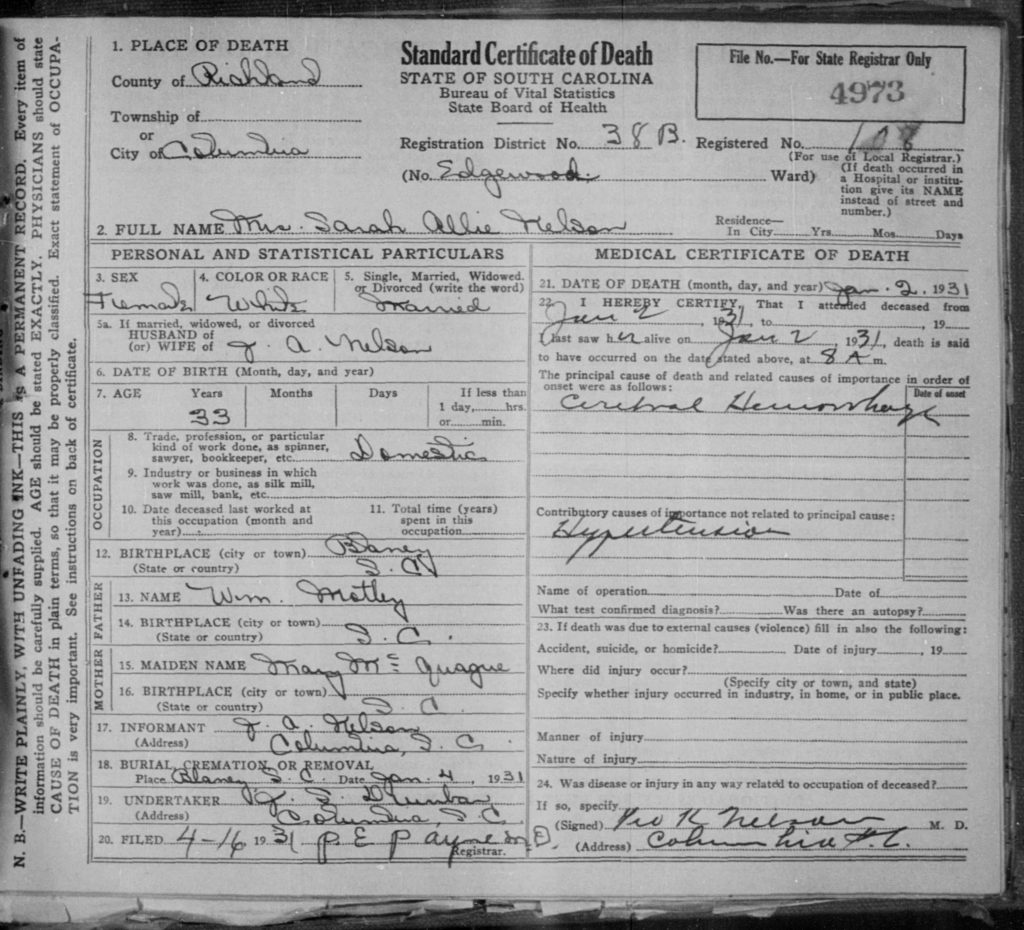 N. B.—WRITE PLAINLY, WITH UNFADING INK—THIS IS A PERMANENT RECORD. Every item of
information should be carefully supplied. AGE should be stated EXACTLY. PHYSICIANS should state
CAUSE OF DEATH in plain terms, so that it may be properly classified. Exact statement of OCCUPA-
TION is very important. See instructions on back of certificate.
1. PLACE OF DEATH
County of Richland
Township of
or
City of Columbia
Standard Certificate of Death
STATE OF SOUTH CAROLINA
Bureau of Vital Statistics
State Board of Health
File No.—For State Registrar Only
4973
Registration District No. 38 B. Registered No. 108
(For use of Local Registrar.)
(No. Edgewood. Ward)
(If death occurred in
a Hospital or institu-
tion give its NAME
instead of street and
number.)
2. FULL NAME Mrs. Sarah Allie Nelson
Residence—
In City Yrs. Mos. Days
PERSONAL AND STATISTICAL PARTICULARS
3. SEX 4. COLOR OR RACE 5. Single, Married, Widowed.
or Divorced (write the word)
Female White Married
5a. If married, widowed, or divorced
HUSBAND of
(or) WIFE of J. A. Nelson
6. DATE OF BIRTH (Month, day, and year)
7. AGE Years Months Days If less than
1 day, hrs.
33 or min.
OCCUPATION
8. Trade, profession, or particular
kind of work done, as spinner,
sawyer, bookkeeper, etc. Domestic
9. Industry or business in which
work was done, as silk mill,
saw mill, bank, etc.
10. Date deceased last worked at
this occupation (month and
year)
11. Total time (years)
spent in this
occupation
12. BIRTHPLACE (city or town) Blaney
(State or country) S. C.
FATHER
13. NAME Wm. Motley
14. BIRTHPLACE (city or town)
(State or country) S. C.
MOTHER
15. MAIDEN NAME Mary Mc
16. BIRTHPLACE (city or town)
(State or country) S. C.
17. INFORMANT J. A. Nelson
(Address) Columbia, S. C.
18. BURIAL, CREMATION, OR REMOVAL
Place Blaney S. C. Date Jan. 4, 1931
19. UNDERTAKER J. S. Dunbar
(Address) Columbia, S. C.
20. FILED 4-16 1931 P E Payne M D.
Registrar.
MEDICAL CERTIFICATE OF DEATH
21. DATE OF DEATH (month, day, and year) Jan. 2. 1931
22. I HEREBY CERTIFY, That I attended deceased from
Jan 2, 1931, to , 19
I last saw her alive on Jan 2, 1931, death is said
to have occurred on the date stated above, at 8 A m.
The principal cause of death and related causes of importance in order of
onset were as follows:
Date of onset
Cerebral Hemorrhage
Contributory causes of importance not related to principal cause:
Hypertension
Name of operation Date of
What test confirmed diagnosis? Was there an autopsy?
23. If death was due to external causes (violence) fill in also the following:
Accident, suicide, or homicide? Date of injury , 19
Where did injury occur?
(Specify city or town, and state)
Specify whether injury occurred in industry, in home, or in public place.
Manner of injury
Nature of injury
24. Was disease or injury in any way related to occupation of deceased?
If so, specify
(Signed) Nelson M. D.
(Address) Columbia S. C.